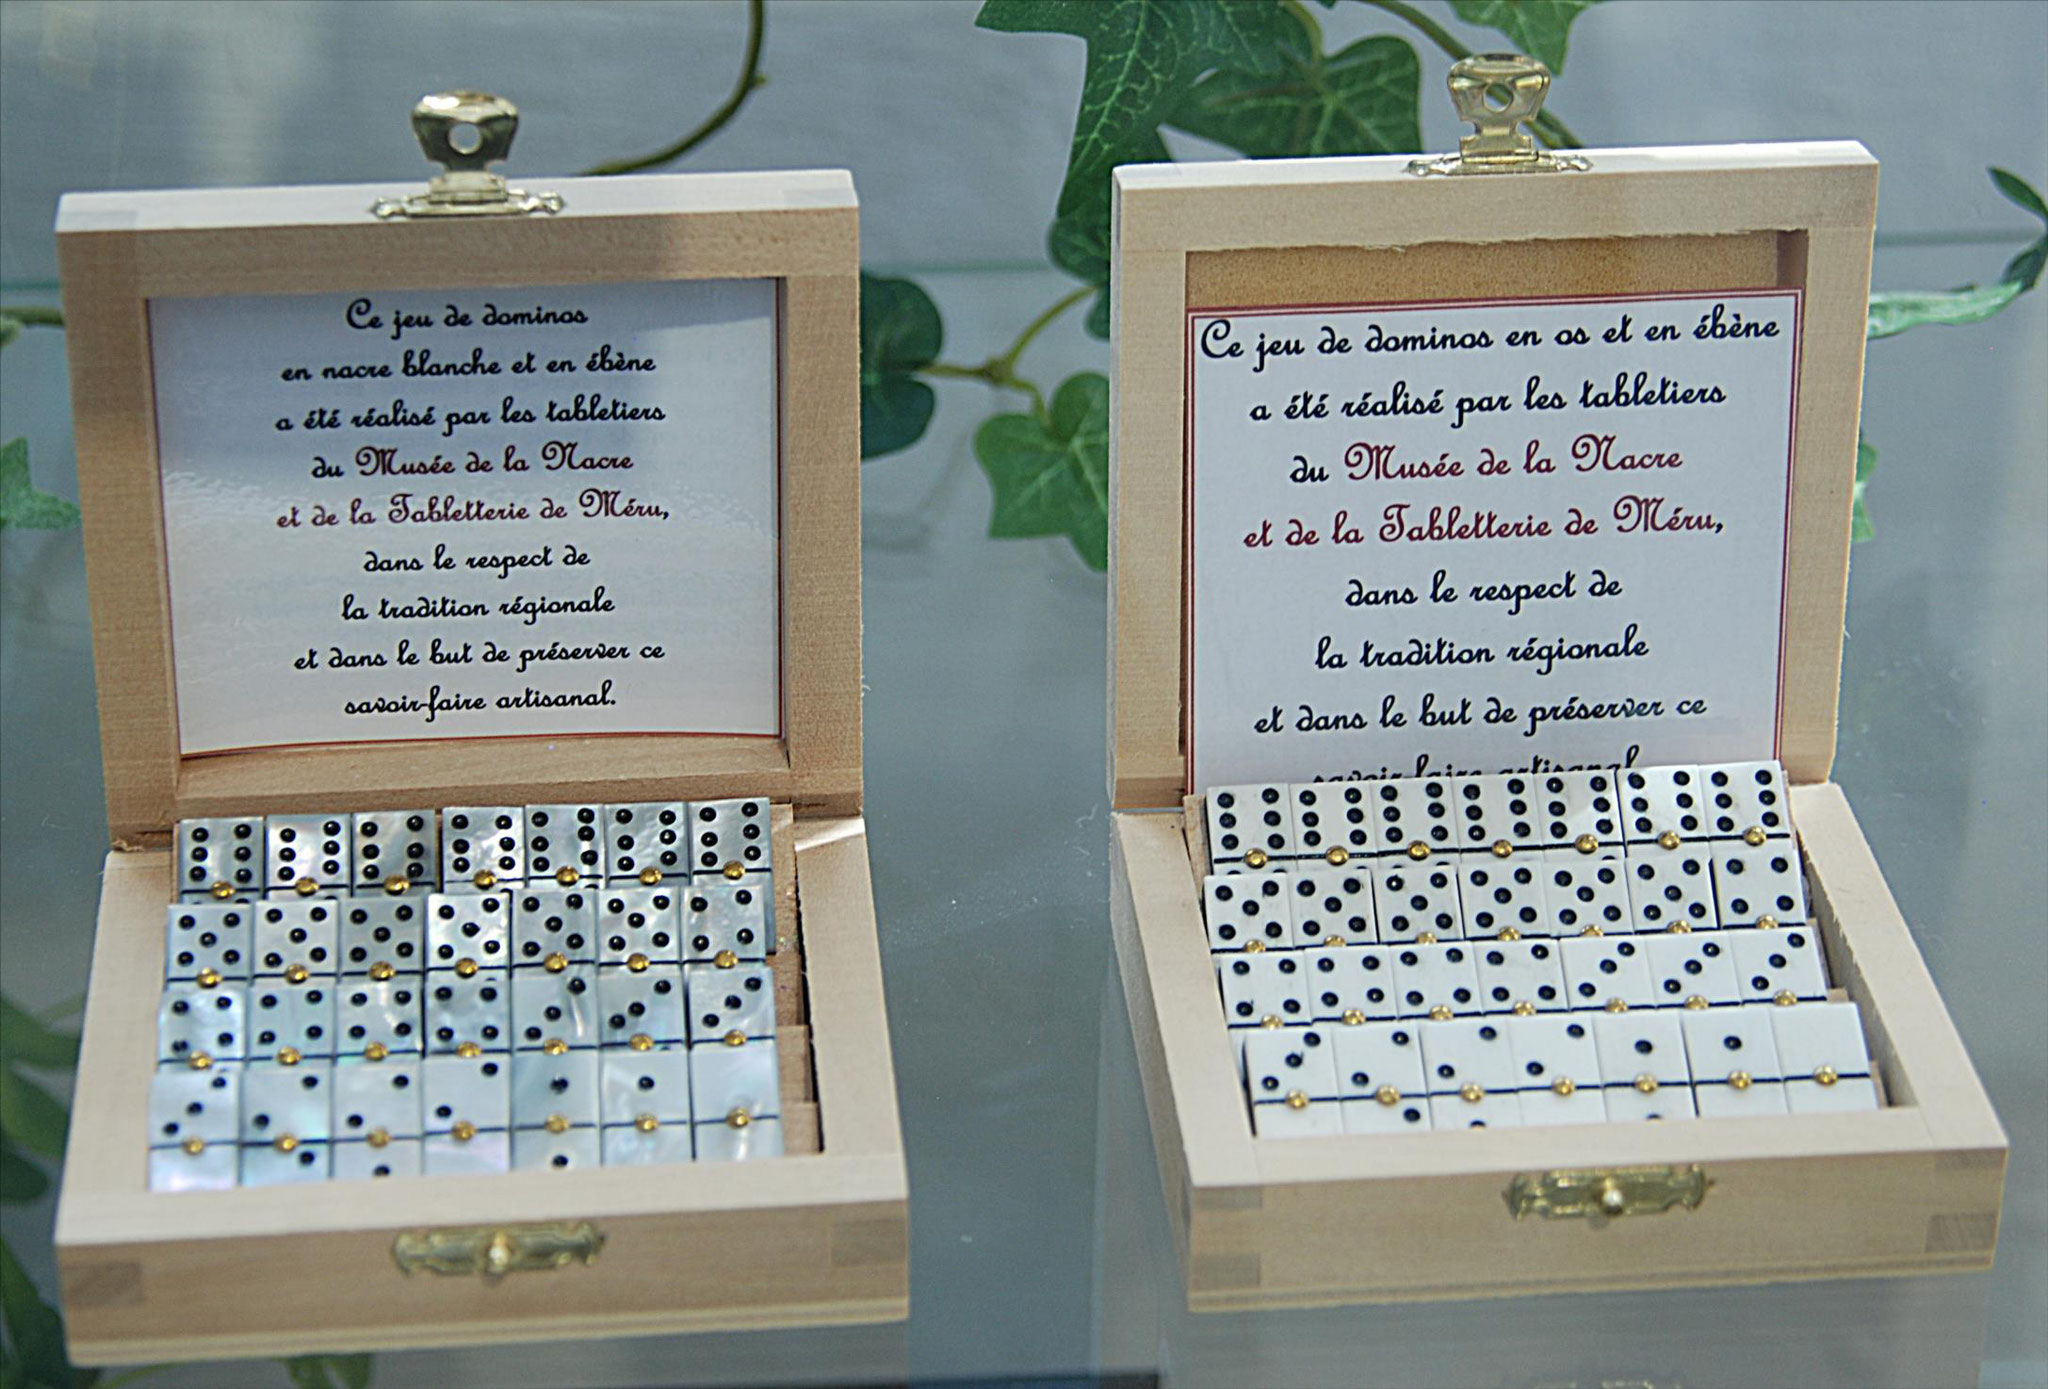 Ce jeu de dominos
en nacre blanche et en ébène
a été réalisé par les tabletiers
du Musée de la Nacre
et de la Tabletterie de Méru,
dans le respect de
la tradition régionale
et dans le but de préserver ce
savoir-faire artisanal.
Ce jeu de dominos en os et en ébène
a été réalisé par les tabletiers
du Musée de la Nacre
et de la Tabletterie de Méru,
dans le respect de
la tradition régionale
et dans le but de préserver ce
savoir-faire artisanal